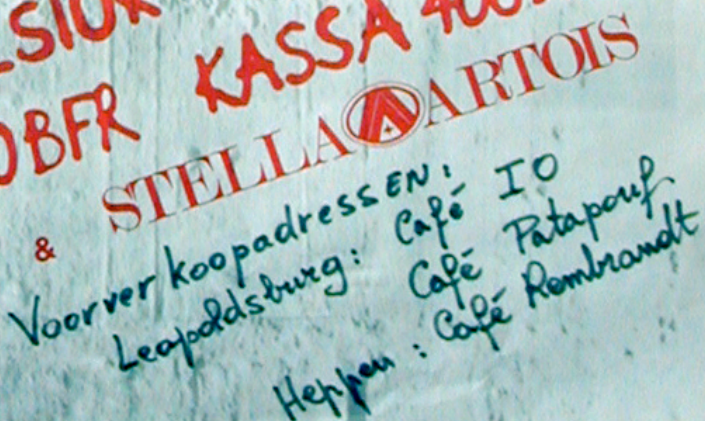 BFR KASSA
& STELLA ARTOIS
VoorverkoopadressEN:
Leopoldsburg: Café IO
Café Patapouf
Heppen: Café Rembrandt